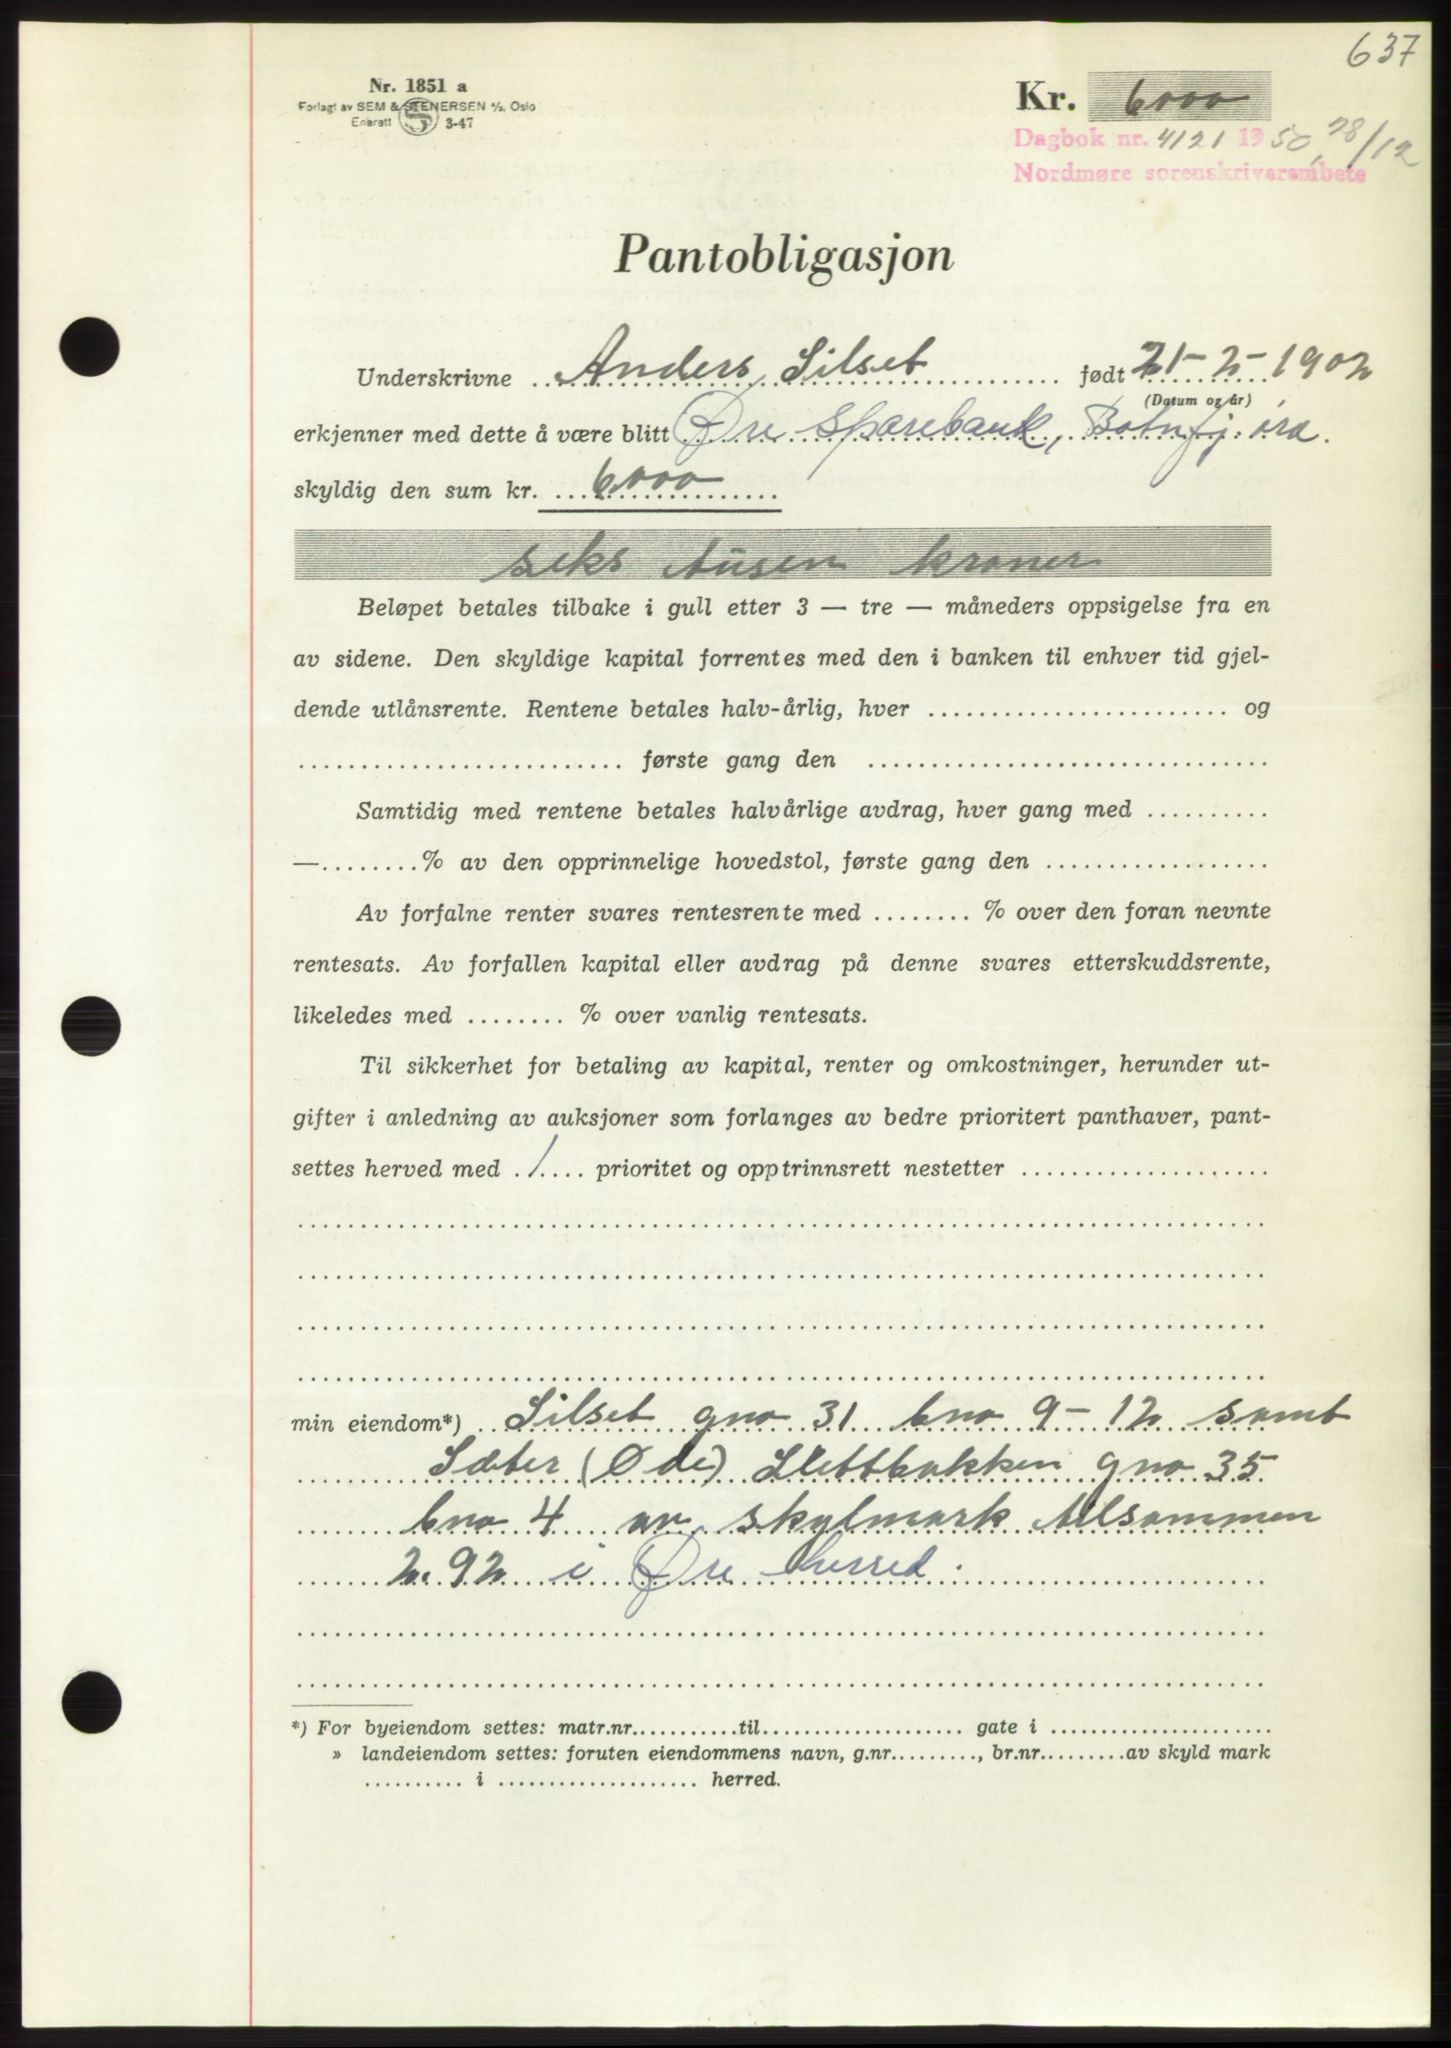 637
Nr. 1851 a
Forlagt av SEM & STENERSEN A/S, Oslo
Enerett S 3-47
Kr. 6000
Dagbok nr. 4121 1950, 28/12
Nordmøre sorenskriverembete
Pantobligasjon
Underskrivne Anders Silset født 21-2-1902
(Datum og år)
erkjenner med dette å være blitt Øre Sparebank, Batnfj.øra.
skyldig den sum kr. 6000
seks tusen kroner
Beløpet betales tilbake i gull etter 3 — tre — måneders oppsigelse fra en
av sidene. Den skyldige kapital forrentes med den i banken til enhver tid gjel-
dende utlånsrente. Rentene betales halv-årlig, hver ........................ og
.......................... første gang den ................................
Samtidig med rentene betales halvårlige avdrag, hver gang med ..........
—........% av den opprinnelige hovedstol, første gang den ..................
Av forfalne renter svares rentesrente med ........ % over den foran nevnte
rentesats. Av forfallen kapital eller avdrag på denne svares etterskuddsrente,
likeledes med ........ % over vanlig rentesats.
Til sikkerhet for betaling av kapital, renter og omkostninger, herunder ut-
gifter i anledning av auksjoner som forlanges av bedre prioritert panthaver, pant-
settes herved med 1 prioritet og opptrinnsrett nestetter ....................
min eiendom*) Silset gno 31 bno 9-12 samt
Sæter (Øde) Slettbakken gno 35
bno 4 av skylmark tilsammen
2.92 i Øre herred.
*) For byeiendom settes: matr.nr...........til.................... gate i ......................
» landeiendom settes: foruten eiendommens navn, g.nr.........., br.nr.........av skyld mark
.......... i .................... herred.